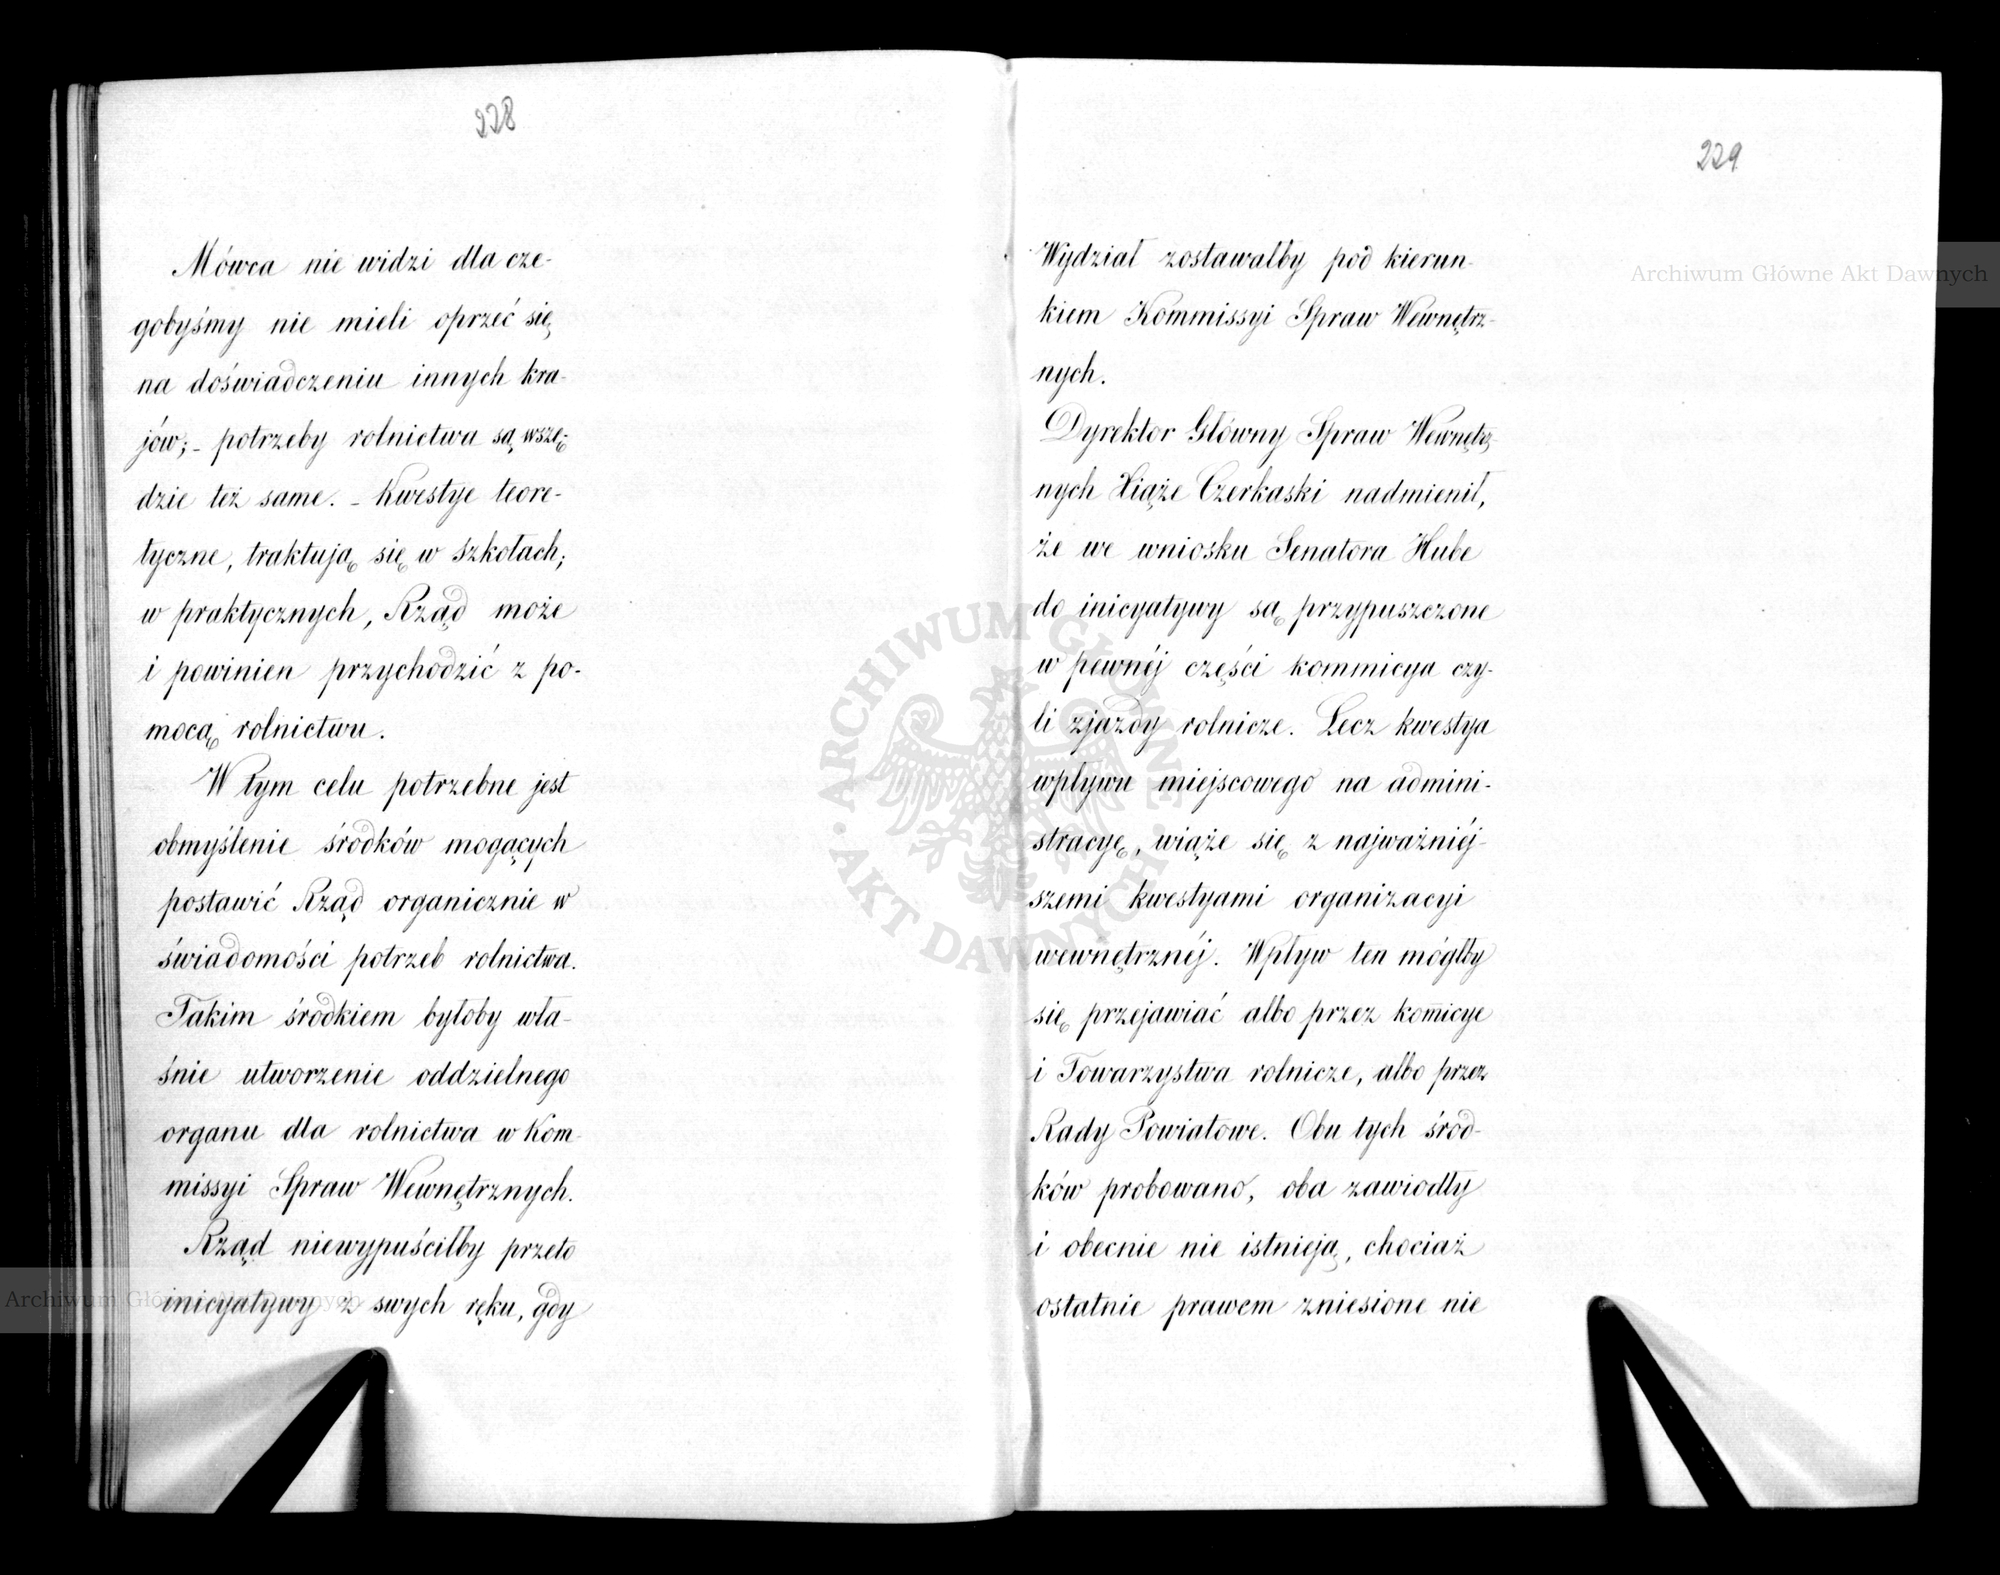 228
Mówca nie widzi dla cze-
gobyśmy nie mieli oprzeć się
na doświadczeniu innych kra-
jów; - potrzeby rolnictwa są wszę-
dzie też same. - Kwestye teore-
tyczne, traktują się w szkołach;
w praktycznych, Rząd może
i powinien przychodzić z po-
mocą rolnictwu.
W tym celu potrzebne jest
obmyślenie środków mogących
postawić Rząd organicznie w
świadomości potrzeb rolnictwa.
Takim środkiem byłoby wła-
śnie utworzenie oddzielnego
organu dla rolnictwa w Kom-
missyi Spraw Wewnętrznych.
Rząd niewypuściłby przeto
inicyatywy z swych ręku, gdy
229
Wydział zostawałby pod kierun-
kiem Kommissyi Spraw Wewnętrz-
nych.
Dyrektor Główny Spraw Wewnętrz-
nych Xiąże Czerkaski nadmienił,
że we wniosku Senatora Hube
do inicyatywy są przypuszczone
w pewnéj części kommicya czy-
li zjazdy rolnicze. Lecz kwestya
wpływu miejscowego na admini-
stracyę, wiąże się z najważniéj-
szemi kwestyami organizacyi
wewnętrznéj. Wpływ ten mógłby
się przejawiać albo przez komicye
i Towarzystwa rolnicze, albo przez
Rady Powiatowe. Obu tych środ-
ków probowano, oba zawiodły
i obecnie nie istnieją, chociaż
ostatnie prawem zniesione nie
Archiwum Główne Akt Dawnych
Archiwum Główne Akt Dawnych
ARCHIWUM GŁÓWNE
AKT DAWNYCH